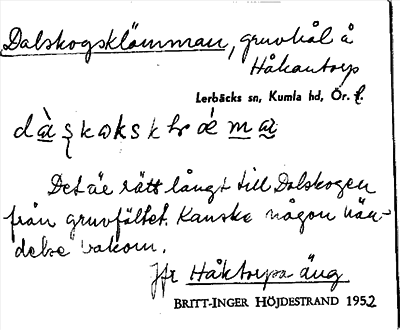 Dalskogsklämman, gruvhål å
Håkantorp
Lerbäcks sn, Kumla hd, Ör. l.
Det är rätt långt till Dalskogen
från gruvfältet. Kanske någon hän-
delse bakom.
Jfr Håktorpa äng
BRITT-INGER HÖJDESTRAND 1952